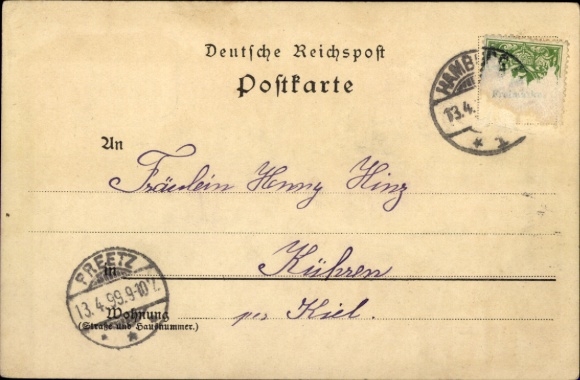 Deutsche Reichspost
Postkarte
HAMBURG
13.4.
1.
An
Fräulein Henny Hinz
in
Kühren
per Kiel.
PREETZ
13.4.99.9-10V.
Wohnung
(Straße und Hausnummer.)